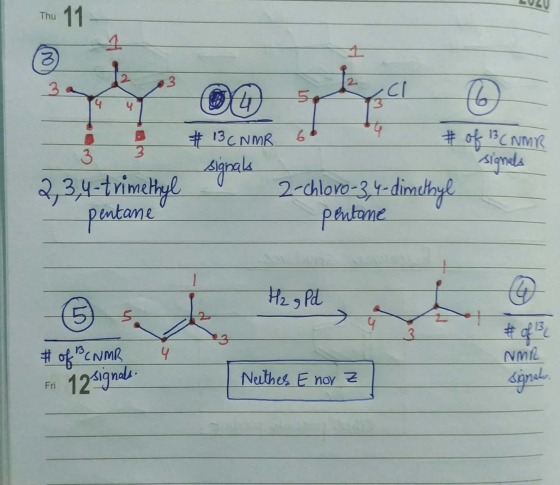 2020
Thu 11
3
1
2
3
3
4
4
3
3
4
# 13C NMR
signals
2,3,4-trimethyl
pentane
1
2
Cl
5
3
4
6
6
# of 13C NMR
signals
2-chloro-3,4-dimethyl
pentane
5
# of 13C NMR
signals.
1
5
2
3
4
H2, Pd
1
2
4
3
1
4
# of 13C
NMR
signal.
Fri 12
Neither E nor Z